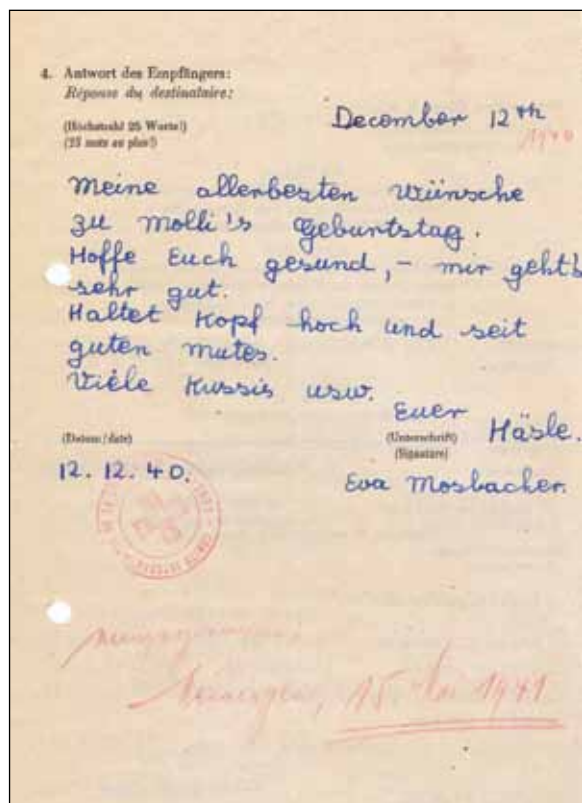 4. Antwort des Empfängers:
Réponse du destinataire:
(Höchstzahl 25 Worte!)
(25 mots au plus!)
December 12th
1940
Meine allerbesten Wünsche
zu Molli's Geburtstag.
Hoffe Euch gesund, – mir geht's
sehr gut.
Haltet Kopf hoch und seit
guten mutes.
Viele Kussis usw.
Euer Häsle.
(Datum/date)
(Unterschrift)
(Signature)
12.12.40.
Eva Mosbacher.
15. Mai 1941